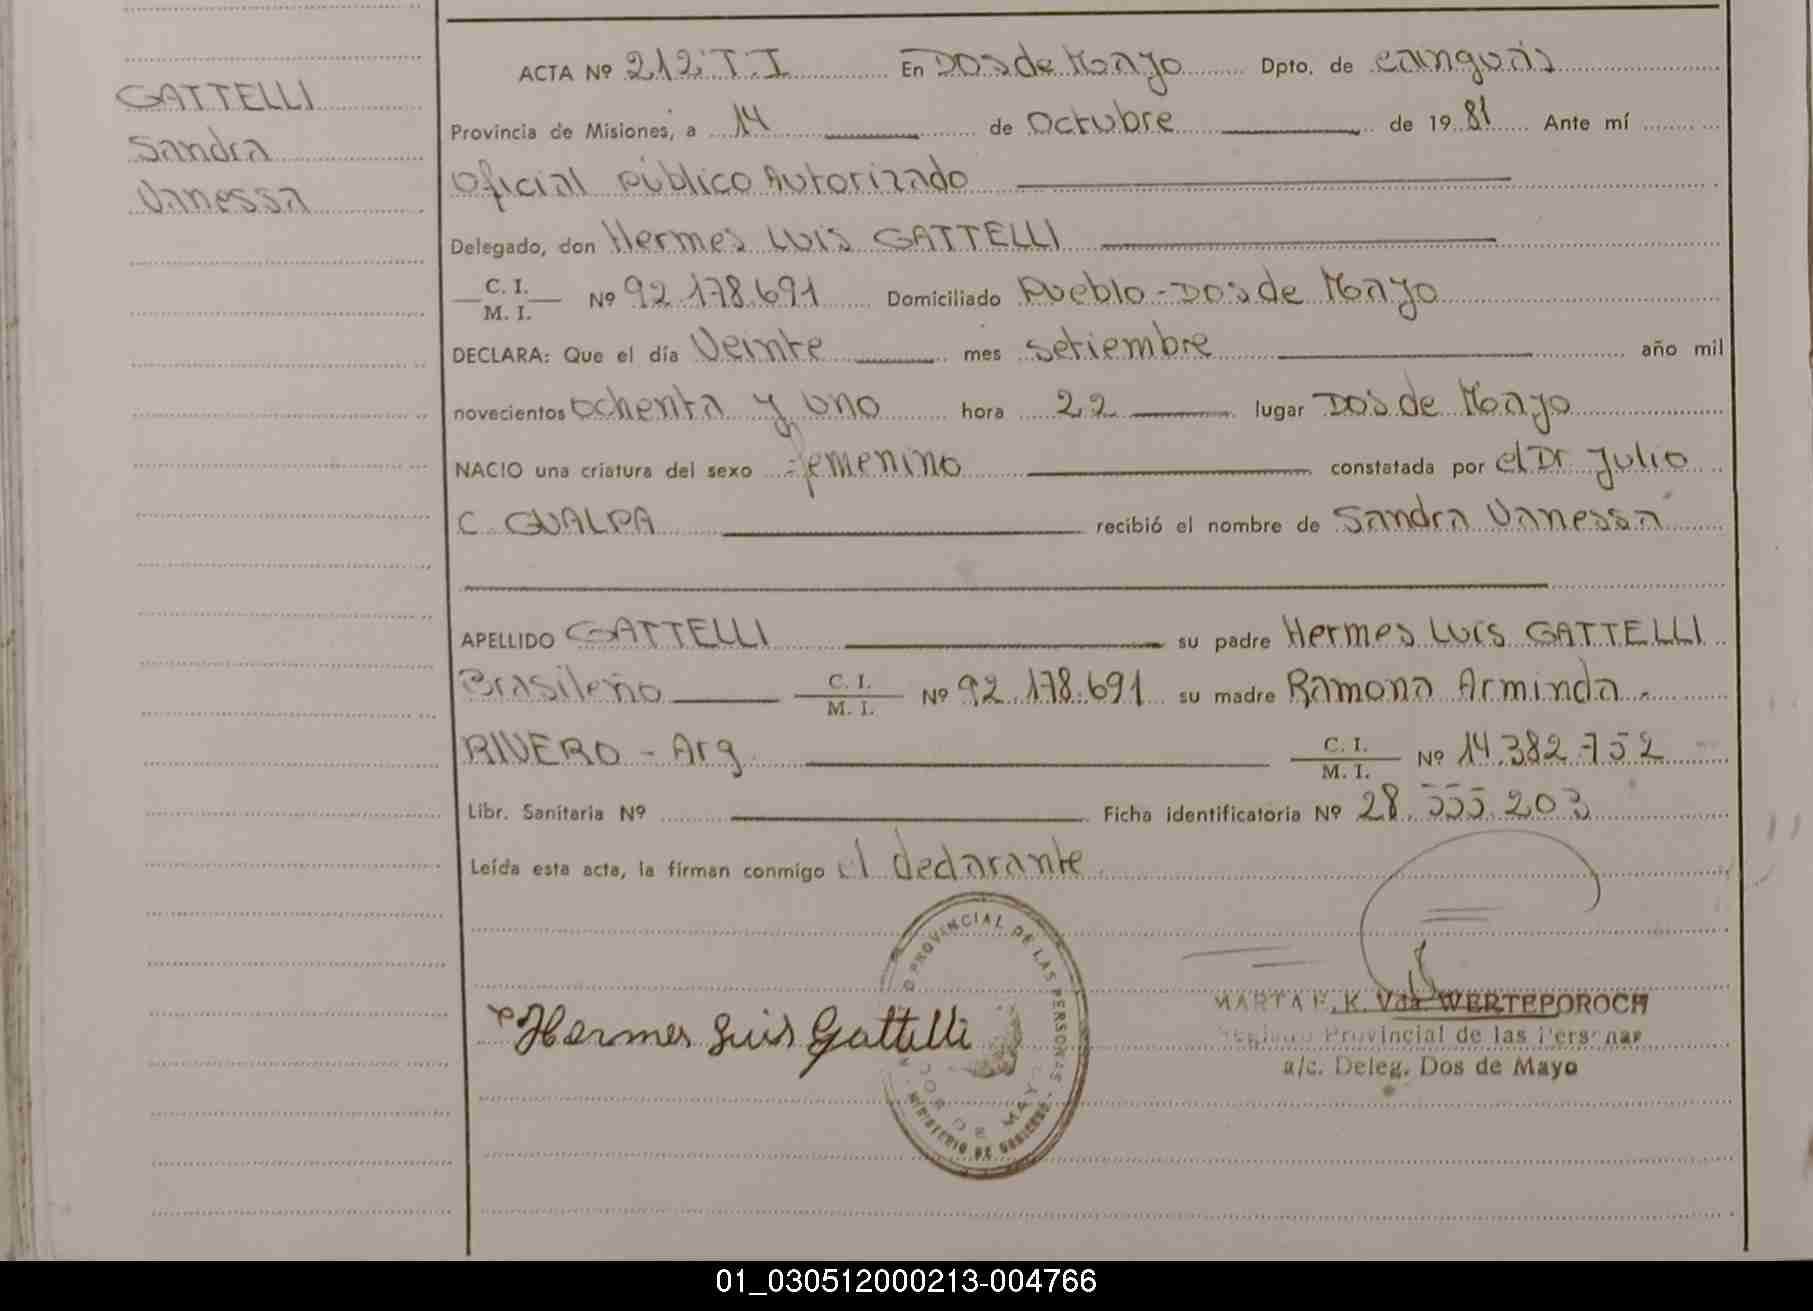 GATTELLI
Sandra
Vanessa
ACTA Nº 212 T I En Dos de Mayo Dpto. de Cainguás
Provincia de Misiones, a 14 de Octubre de 1981 Ante mí
Oficial Público Autorizado
Delegado, don Hermes Luis GATTELLI
C. I.
M. I. Nº 92.178.691 Domiciliado Pueblo - Dos de Mayo
DECLARA: Que el día Veinte mes setiembre año mil
novecientos ochenta y uno hora 22 lugar Dos de Mayo
NACIO una criatura del sexo femenino constatada por el Dr Julio
C. GUALPA recibió el nombre de Sandra Vanessa
APELLIDO GATTELLI su padre Hermes Luis GATTELLI
Brasileño C. I.
M. I. Nº 92.178.691 su madre Ramona Arminda
RIVERO - Arg C. I.
M. I. Nº 14.382.752
Libr. Sanitaria Nº Ficha identificatoria Nº 28.555.203
Leída esta acta, la firman conmigo el declarante
PROVINCIAL DE LAS PERSONAS
DOS DE MAYO
MINISTERIO DE GOBIERNO
Hermes Luis Gattelli
MARTA K. Vda. WERTEPOROCH
Provincial de las Personas
a/c. Deleg. Dos de Mayo
01_030512000213-004766